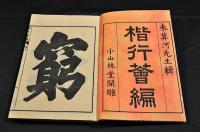 米葊河先生輯
楷行薈編
小山林堂開雕
窮